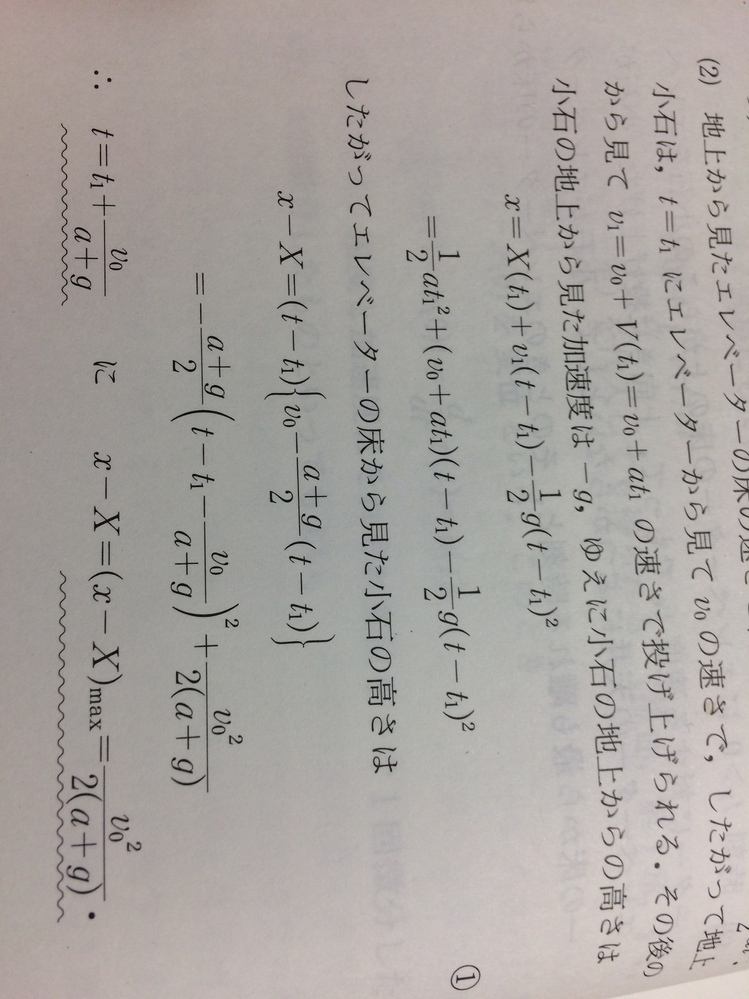 (2) 地上から見たエレベーターの床の速さ
小石は，t=t₁ にエレベーターから見て v₀ の速さで，したがって地上
から見て v₁=v₀+V(t₁)=v₀+at₁ の速さで投げ上げられる．その後の
小石の地上から見た加速度は −g，ゆえに小石の地上からの高さは
x=X(t₁)+v₁(t−t₁)−\frac{1}{2}g(t−t₁)²
=\frac{1}{2}at₁²+(v₀+at₁)(t−t₁)−\frac{1}{2}g(t−t₁)² ①
したがってエレベーターの床から見た小石の高さは
x−X=(t−t₁){v₀−\frac{a+g}{2}(t−t₁)}
=−\frac{a+g}{2}(t−t₁−\frac{v₀}{a+g})²+\frac{v₀²}{2(a+g)}
∴ t=t₁+\frac{v₀}{a+g} に x−X=(x−X)max=\frac{v₀²}{2(a+g)}．